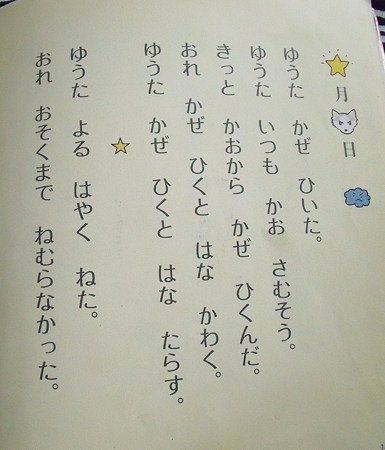 月 日
ゆうた かぜ ひいた。
ゆうた いつも かお さむそう。
きっと かおから かぜ ひくんだ。
おれ かぜ ひくと はな かわく。
ゆうた かぜ ひくと はな たらす。
ゆうた よる はやく ねた。
おれ おそくまで ねむらなかった。